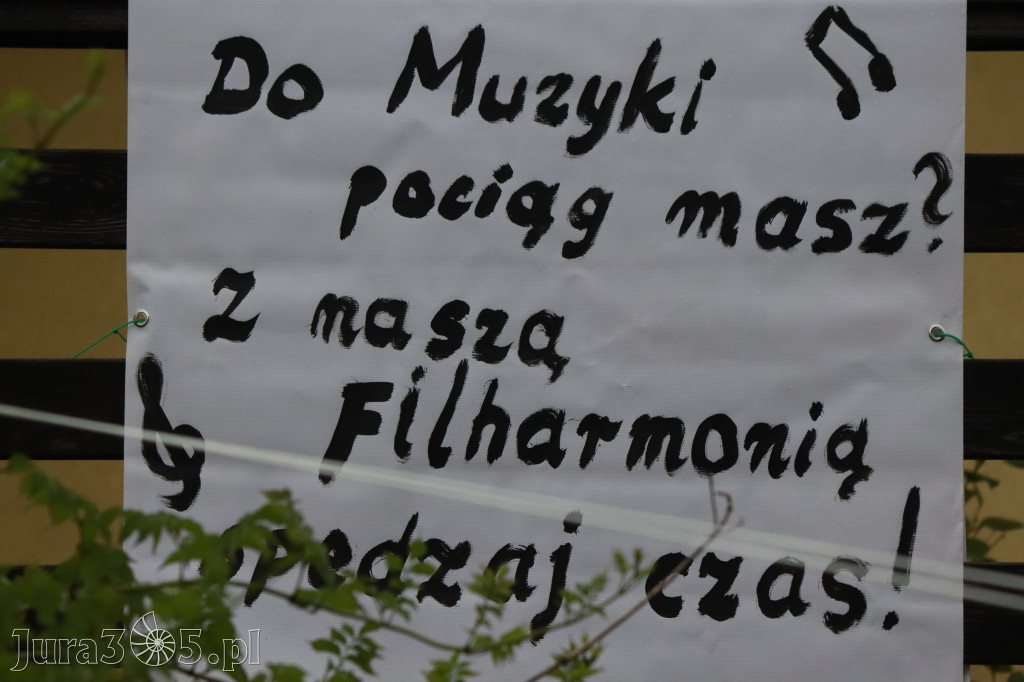 Do Muzyki
pociąg masz?
Z naszą
Filharmonią
spędzaj czas!
Jura365.pl